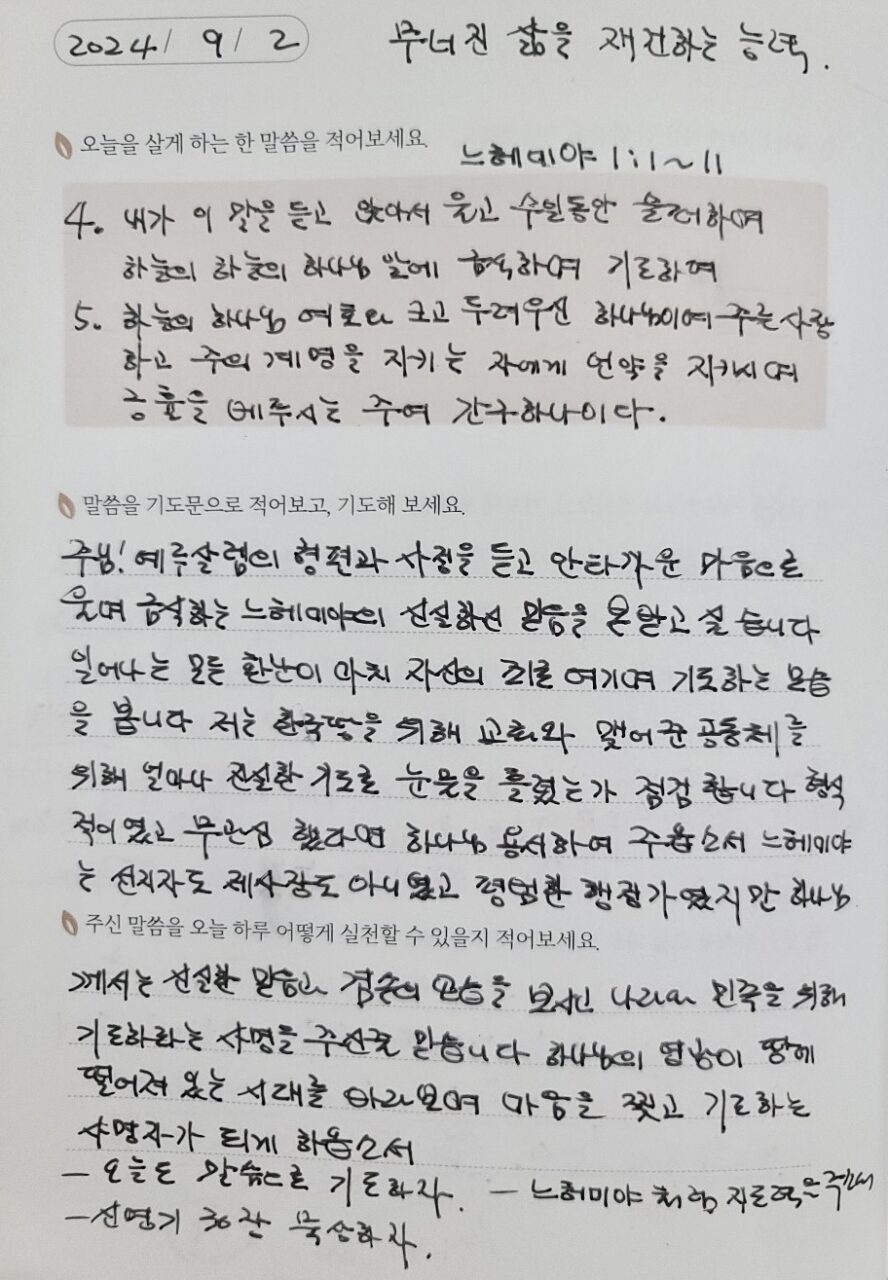 2024/ 9/ 2 무너진 삶을 재건하는 능력.
오늘을 살게 하는 한 말씀을 적어보세요.
느헤미야 1:1~11
4. 내가 이 말을 듣고 앉아서 울고 수일동안 슬퍼하며
하늘의 하늘의 하나님 앞에 금식하며 기도하며
5. 하늘의 하나님 여호와 크고 두려우신 하나님이여 주를 사랑
하고 주의 계명을 지키는 자에게 언약을 지키시며
긍휼을 베푸시는 주여 간구하나이다.
말씀을 기도문으로 적어보고, 기도해 보세요.
주님! 예루살렘의 형편과 사정을 듣고 안타까운 마음으로
울며 금식하는 느헤미야의 신실하신 믿음을 본받고 싶습니다
일어나는 모든 환난이 마치 자신의 죄로 여기며 기도하는 모습
을 봅니다 저는 한국땅을 위해 교회와 맺어준 공동체를
위해 얼마나 진실한 기도로 눈물을 흘렸는가 점검합니다 형식
적이였고 무관심 했다면 하나님 용서하여 주옵소서 느헤미야
는 선지자도 제사장도 아니였고 평범한 행정가였지만 하나님
주신 말씀을 오늘 하루 어떻게 실천할 수 있을지 적어보세요.
께서는 신실한 믿음과 겸손의 모습을 보시고 나라와 민족을 위해
기도하라는 사명을 주신줄 믿습니다 하나님의 영광이 땅에
떨어져 있는 시대를 바라보며 마음을 찢고 기도하는
사명자가 되게 하옵소서
- 오늘도 말씀으로 기도하자. - 느헤미야처럼 지도력을 주소서
- 신명기 30장 묵상하자.